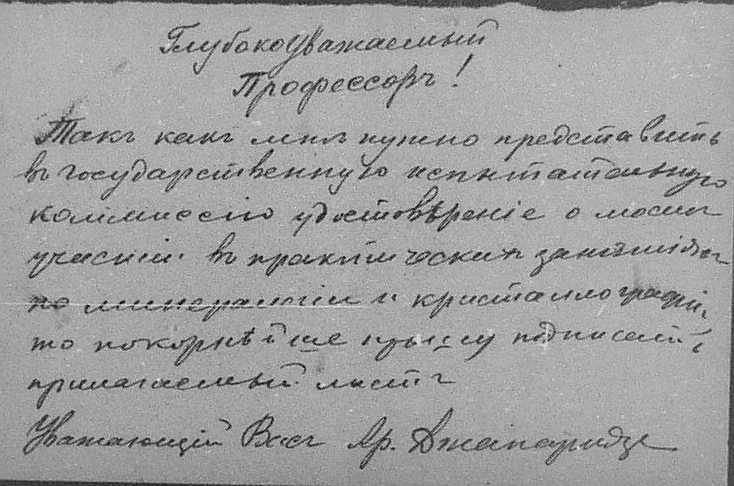 Глубокоуважаемый
Профессоръ!
Такъ какъ мнѣ нужно представить
въ государственную испытательную
коммиссію удостовѣреніе о моемъ
участіи въ практическихъ занятіяхъ
по минералогіи и кристаллографіи,
то покорнѣйше прошу подписать
прилагаемый листъ
Уважающій Васъ Ар. Джапаридзе